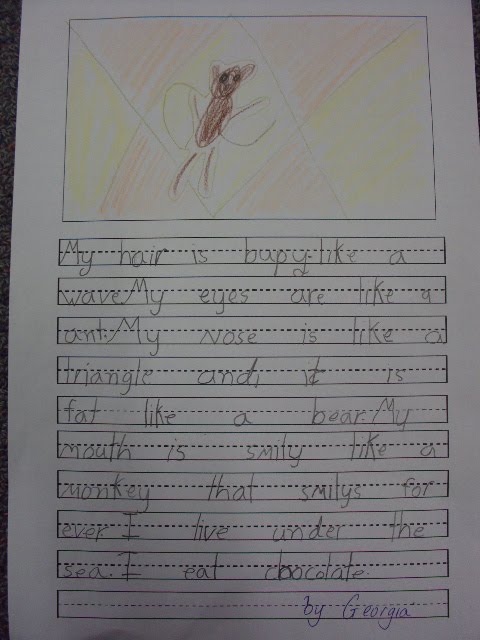 My hair is bupy like a
wave. My eyes are like a
ant. My nose is like a
triangle and, it is
fat like a bear. My
mouth is smily like a
monkey that smilys for
ever. I live under the
sea. I eat chocolate.
by Georgia